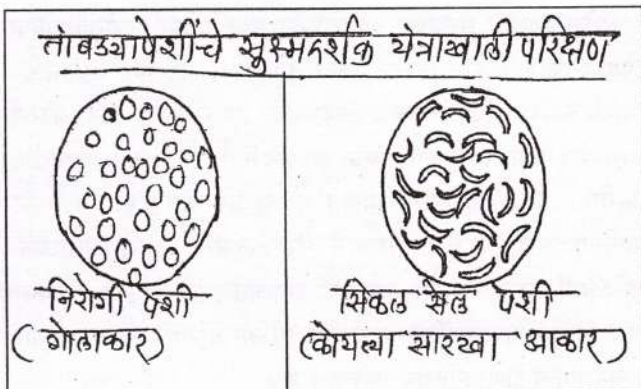 तांबडयापेशींचे सुक्ष्मदर्शक यंत्राखाली परिक्षण
निरोगी पेशी
(गोलाकार)
सिकल सेल पेशी
(कोयत्या सारखा आकार)